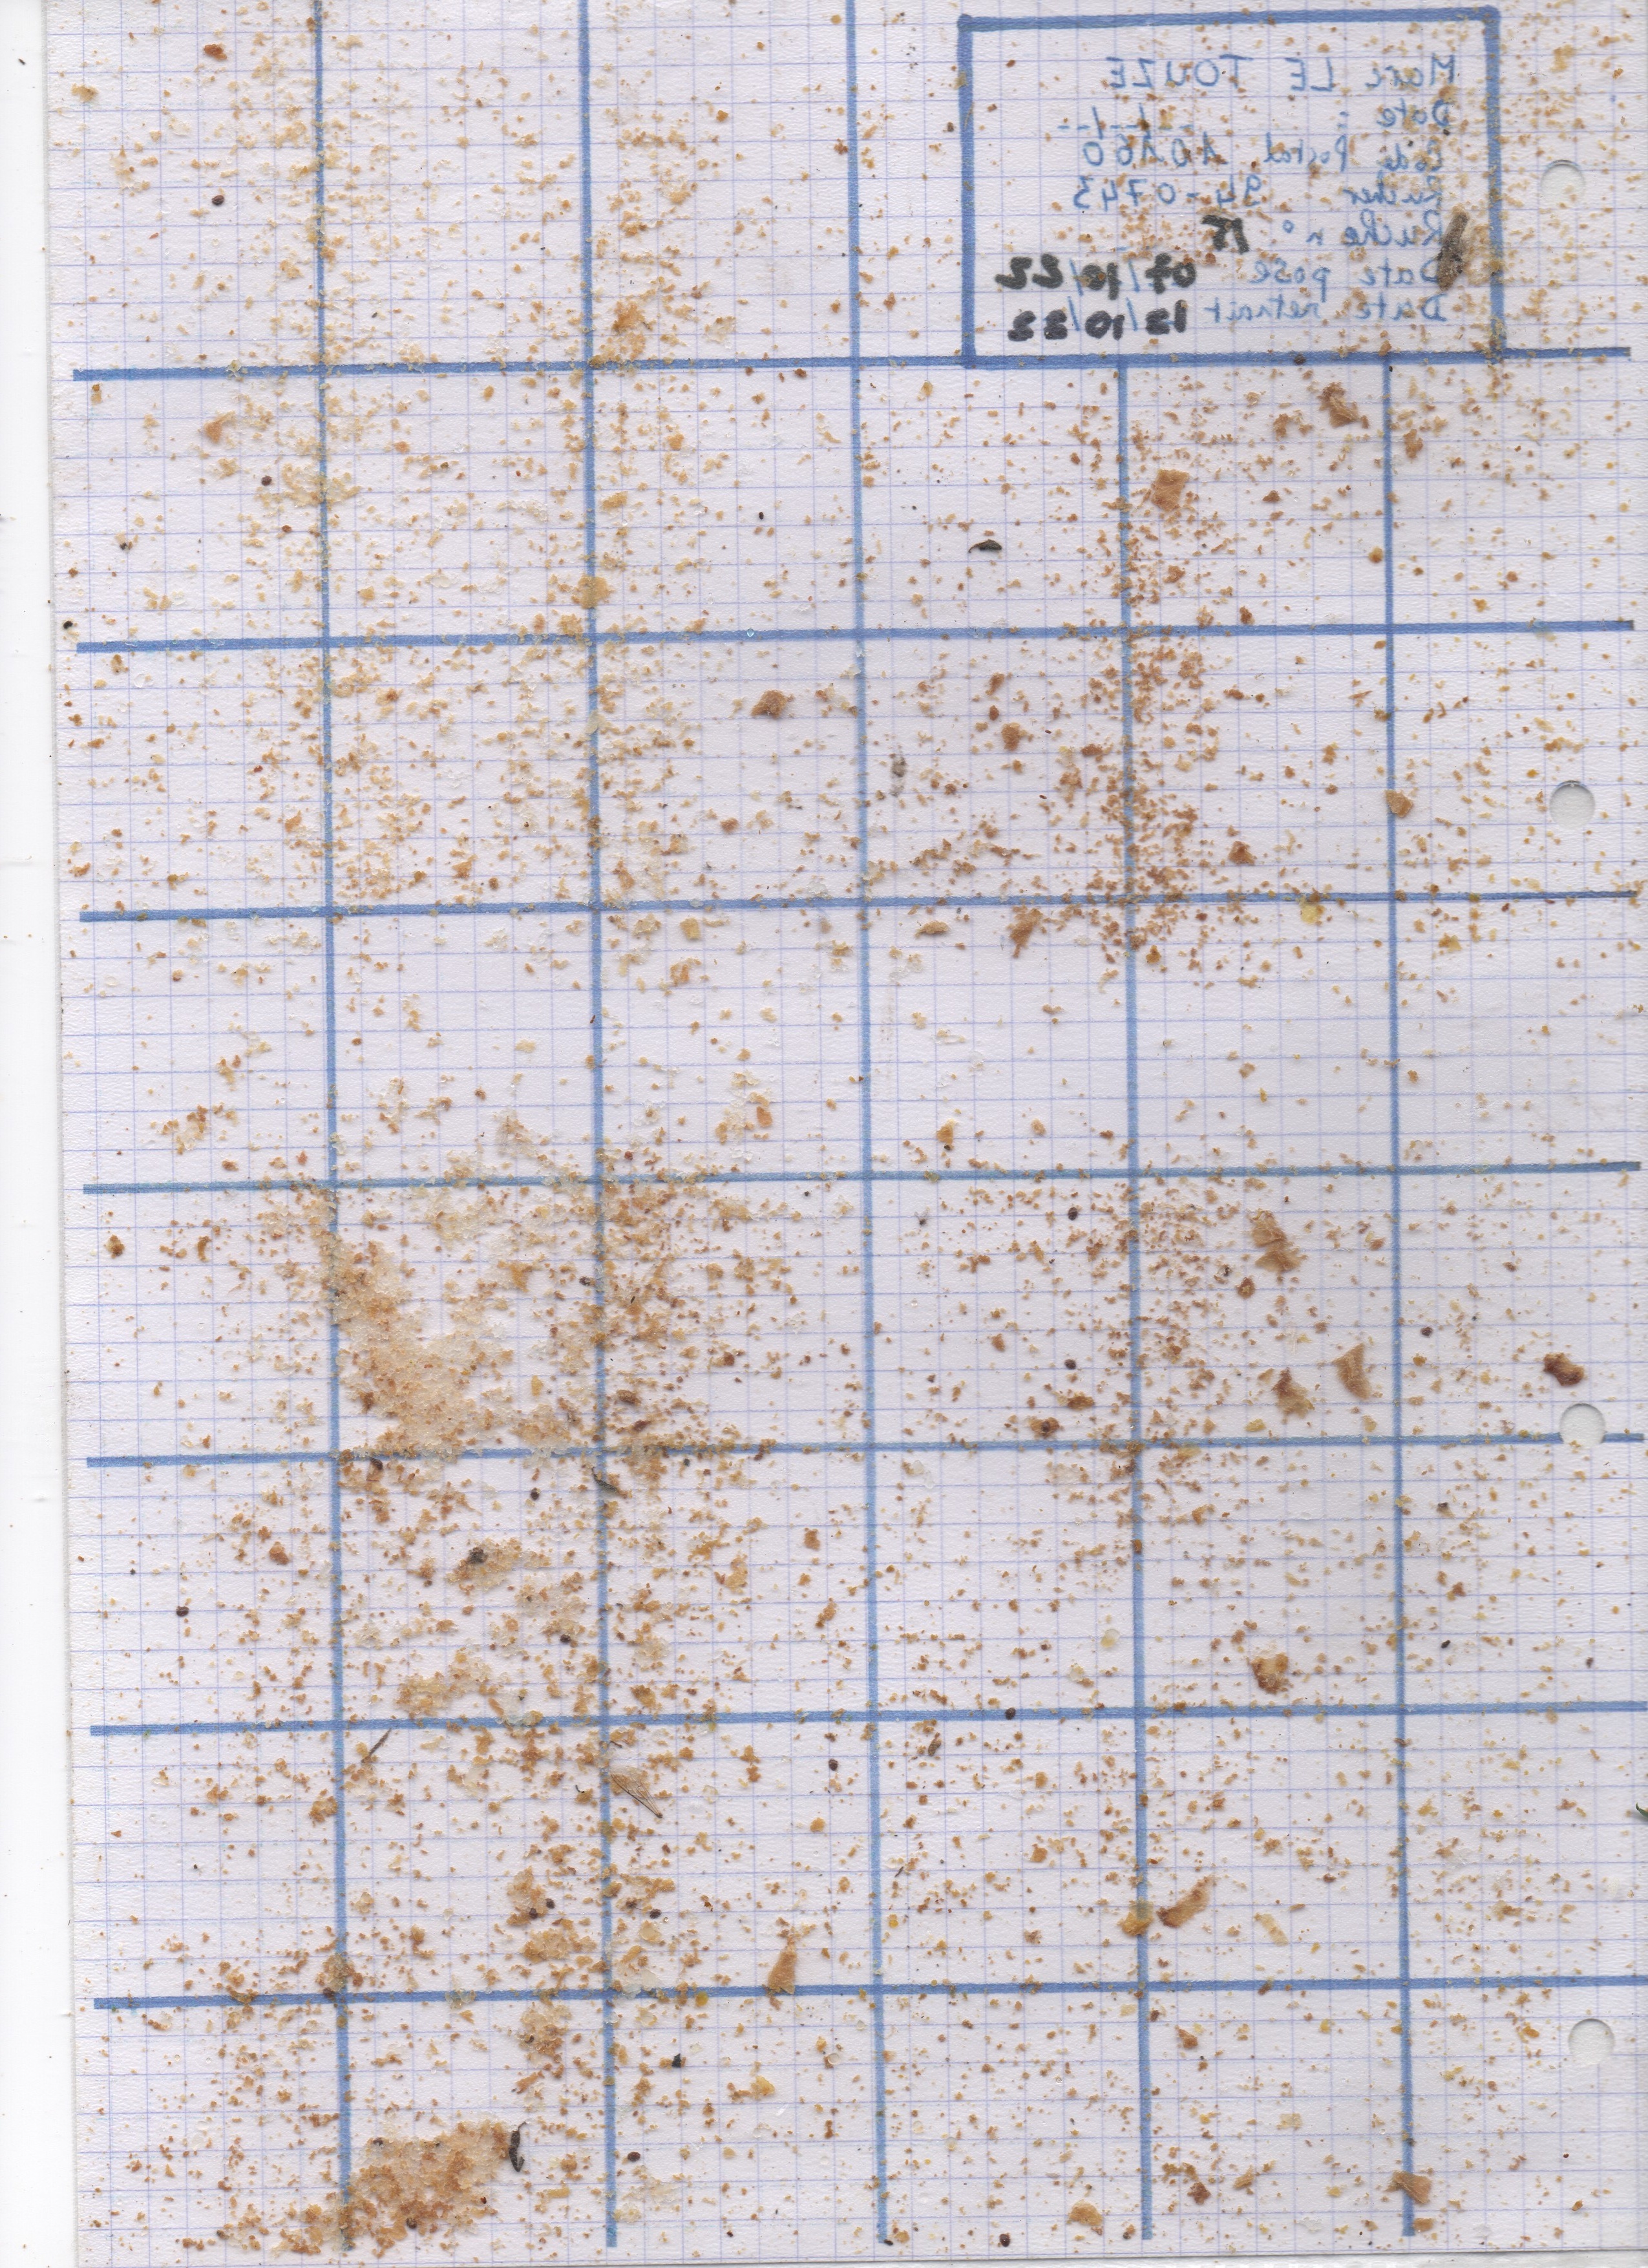 Marc LE TOUZE
Date : __/__/__
Code Postal
Rucher 94-0743
Ruche n°
Date pose 07/10/22
Date retrait 13/10/22